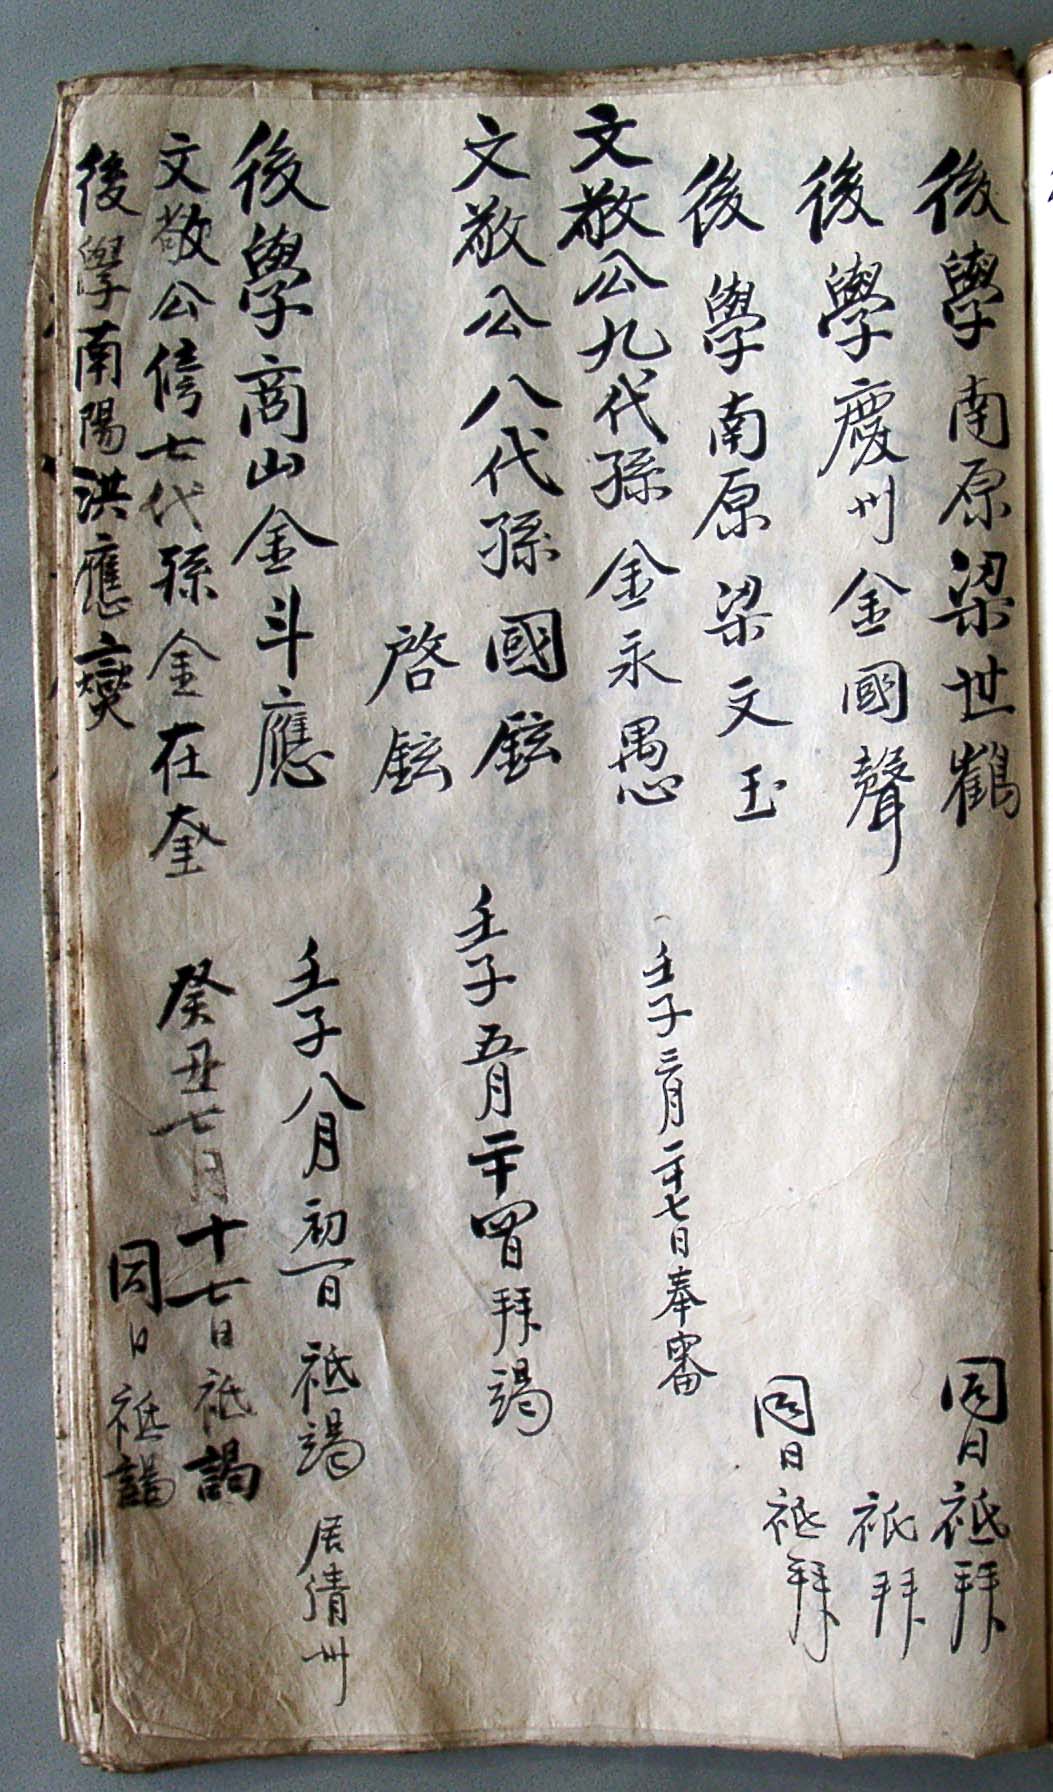 後學南原梁世鶴 同日祗拜
後學慶州金國聲 祗拜
後學南原梁文玉 同日祗拜
文敬公九代孫金永愚 壬子三月二十七日奉審
文敬公八代孫國鉉 壬子五月二十四日拜謁
啓鉉
後學商山金斗應 壬子八月初一日祗謁 居清州
文敬公傍七代孫金在奎 癸丑七月十七日祗謁
後學南陽洪應燮 同日祗謁